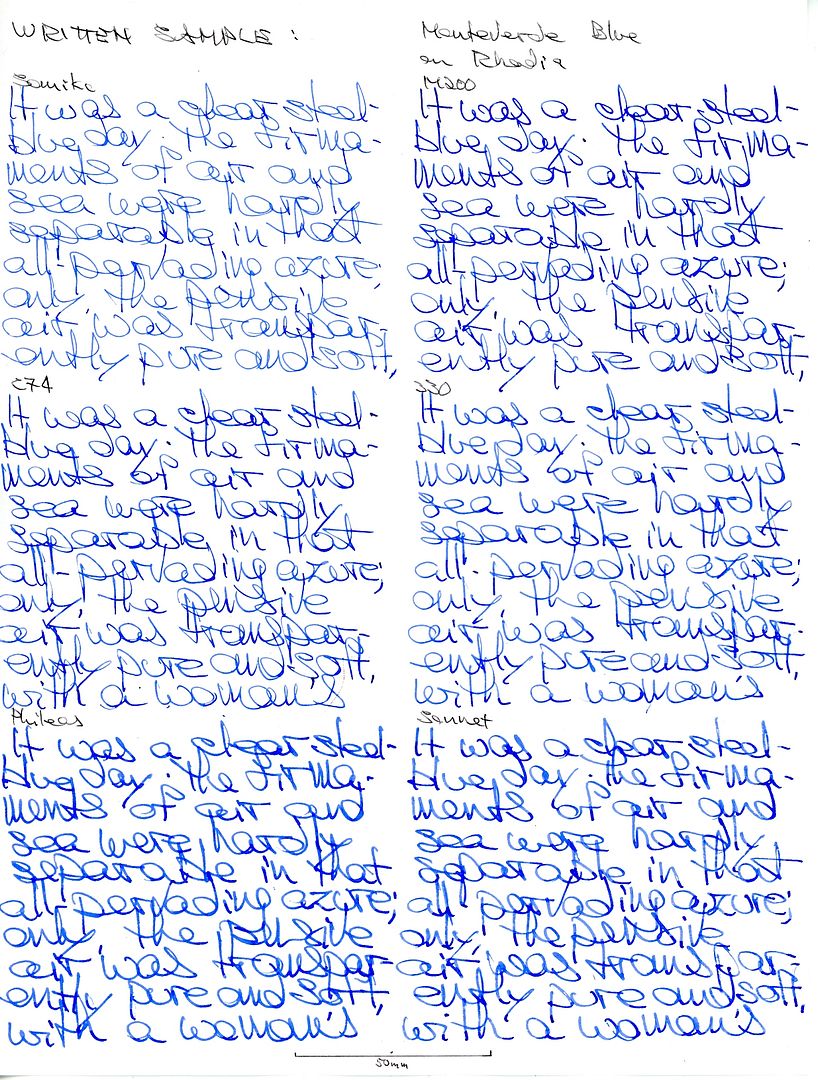 WRITTEN SAMPLE :
Monteverde Blue
on Rhodia
Somiko
It was a clear steel-
blue day. The firma-
ments of air and
sea were hardly
separable in that
all-pervading azure;
only, the pensive
air was transpar-
ently pure and soft,
M200
It was a clear steel-
blue day. The firma-
ments of air and
sea were hardly
separable in that
all-pervading azure;
only, the pensive
air was transpar-
ently pure and soft,
C74
It was a clear steel-
blue day. The firma-
ments of air and
sea were hardly
separable in that
all-pervading azure;
only, the pensive
air was transpar-
ently pure and soft,
with a woman's
330
It was a clear steel-
blue day. The firma-
ments of air and
sea were hardly
separable in that
all-pervading azure;
only, the pensive
air was transpar-
ently pure and soft,
with a woman's
Phileas
It was a clear steel-
blue day. The firma-
ments of air and
sea were hardly
separable in that
all-pervading azure;
only, the pensive
air was transpar-
ently pure and soft,
with a woman's
Sonnet
It was a clear steel-
blue day. The firma-
ments of air and
sea were hardly
separable in that
all-pervading azure;
only, the pensive
air was transpar-
ently pure and soft,
with a woman's
50mm